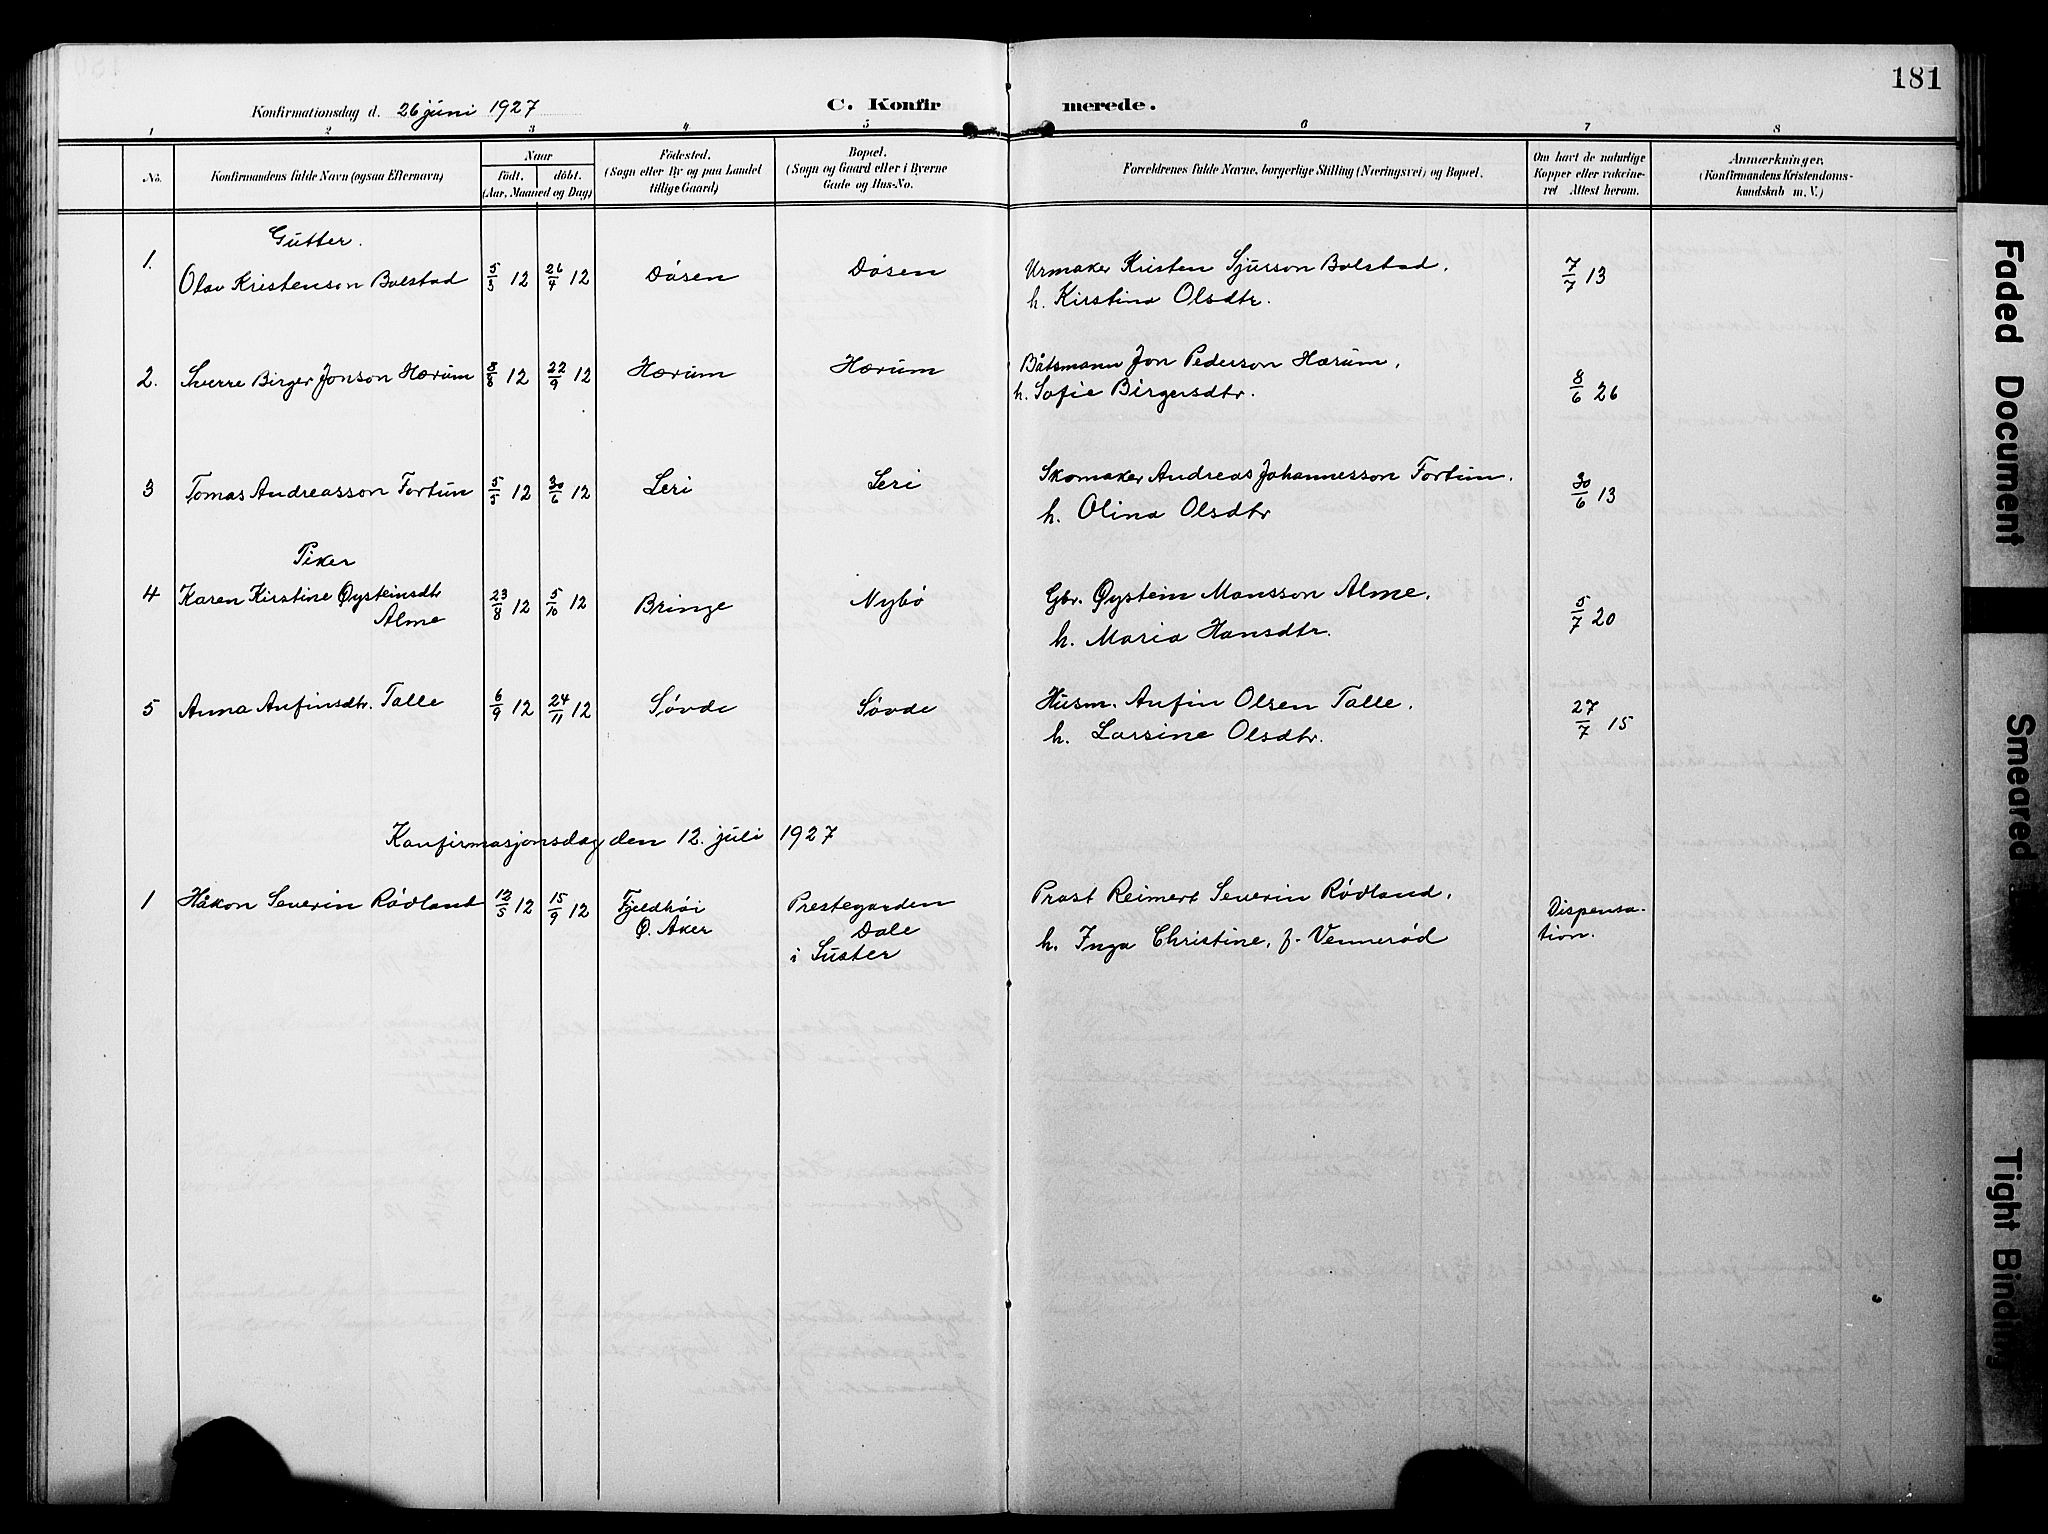 181
Konfirmationsdag d. 26 juni 1927
C. Konfirmerede.
1 2 3 4 5 6 7 8
No.
Konfirmandens fulde Navn (ogsaa Efternavn)
Naar
født. døbt.
(Aar, Maaned og Dag)
Fødested.
(Sogn eller By og paa Landet
tillige Gaard)
Bopæl.
(Sogn og Gaard eller i Byerne
Gade og Hus-No.
Forældrenes fulde Navne, borgerlige Stilling (Næringsvei) og Bopæl.
Om havt de naturlige
Kopper eller vakcine-
ret Attest herom.
Anmærkninger.
(Konfirmandens Kristendoms-
kundskab m. V.)
Gutter.
1. Olav Kristenson Bolstad 5/3 12 26/4 12 Døsen Døsen Urmaker Kristen Sjurson Bolstad,
h. Kirstina Olsdtr. 7/7 13
2. Sverre Birger Jonson Hærum 8/8 12 22/9 12 Hærum Hærum Båtsmann Jon Pederson Hærum,
h. Sofie Birgersdtr. 8/6 26
3 Tomas Andreasson Fortun 5/5 12 30/6 12 Leri Leri Skomaker Andreas Johannesson Fortun,
h. Olina Olsdtr 30/6 13
Piker
4 Karen Kirstine Øysteinsdtr
Alme 23/8 12 5/10 12 Bringe Nybø Gbr. Øystein Mansson Alme,
h. Maria Hansdtr. 5/7 20
5 Anna Anfinsdtr. Talle 6/9 12 24/11 12 Søvde Søvde Husm. Anfin Olsen Talle,
h. Larsine Olsdtr. 27/7 15
Konfirmasjonsdag den 12. juli 1927
1 Håkon Severin Rødland 12/5 12 15/9 12 Fjeldhøi
Ø. Aker Prestegarden
Dale
i Luster Prost Reimert Severin Rødland,
h. Inga Christine, f. Vennerød Dispensa-
tion.
Faded Document
Smeared
Tight Binding